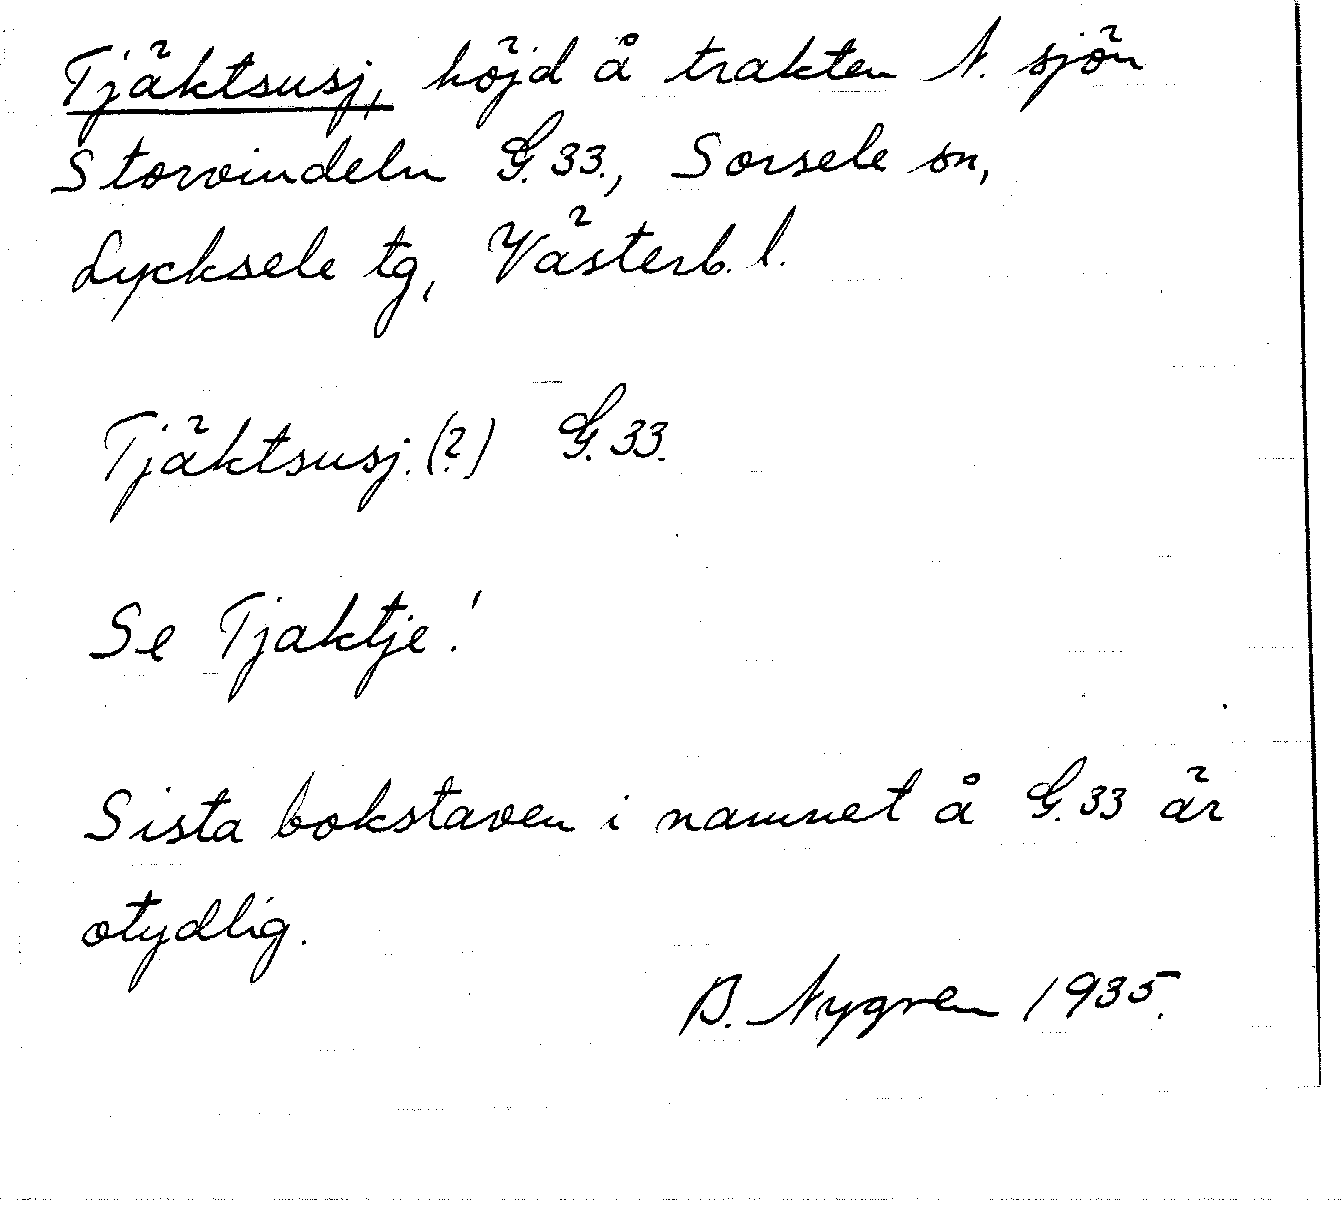 Tjäktsusj, höjd å trakten N. sjön
Storvindeln G.33., Sorsele sn,
Lycksele tg, Västerb. l.
Tjäktsusj.(?) G.33.
Se Tjaktje!
Sista bokstaven i namnet å G.33 är
otydlig.
B. Nygren 1935.